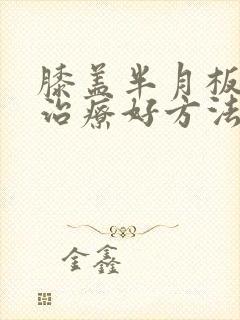 膝盖半月板
治疗好方法
金鑫